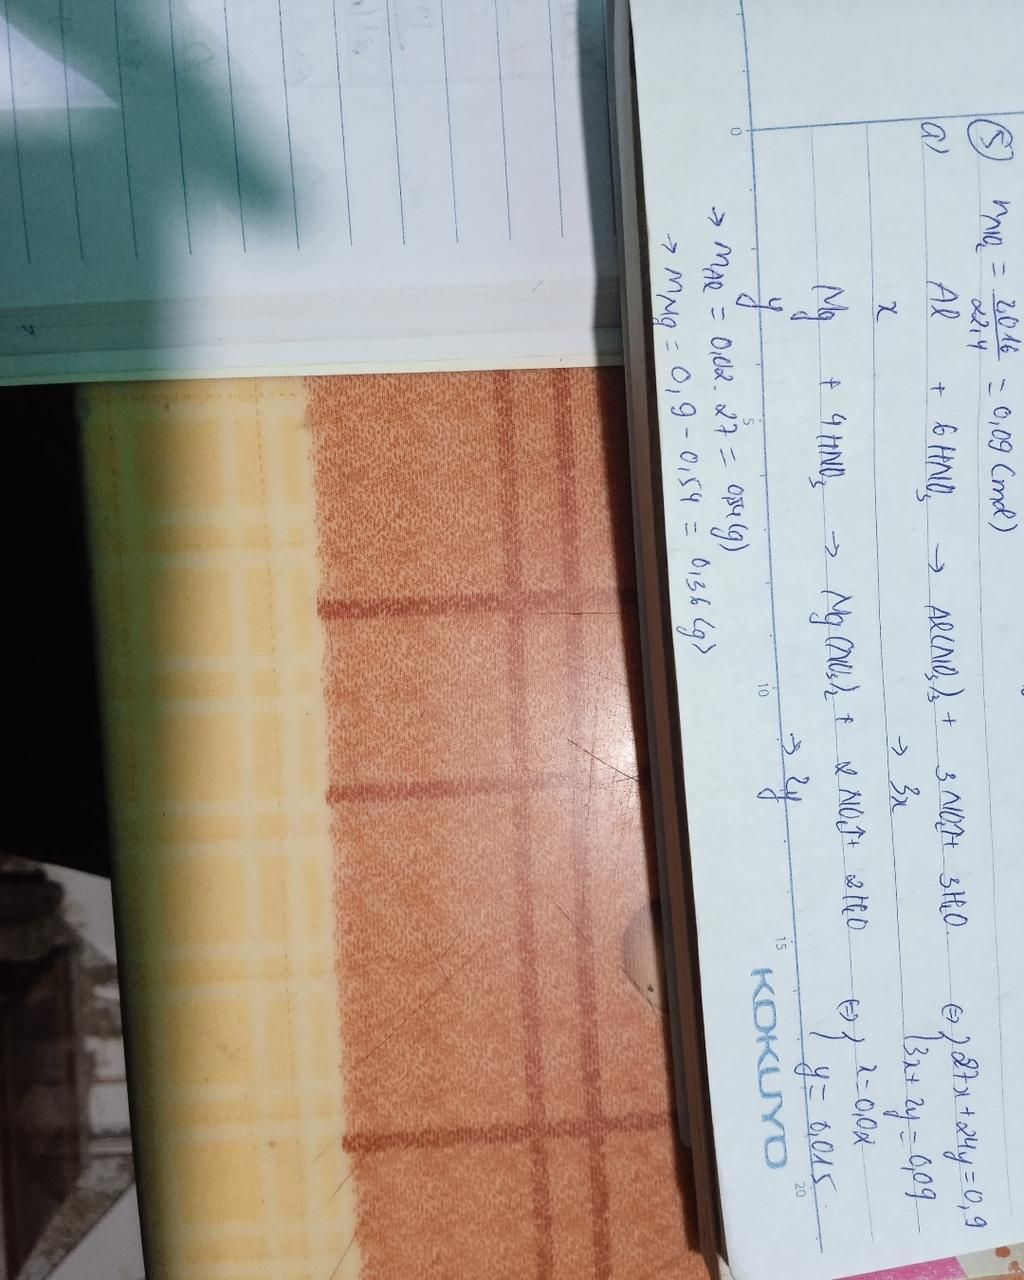 ⑤ nNO₂ = 2,016/22,4 = 0,09 (mol)
a) Al + 6HNO₃ → Al(NO₃)₃ + 3NO₂↑ + 3H₂O ⇔ { 27x + 24y = 0,9
x → 3x { 3x + 2y = 0,09
Mg + 4HNO₃ → Mg(NO₃)₂ + 2NO₂↑ + 2H₂O ⇔ { x = 0,02
y → 2y { y = 0,015
→ mAl = 0,02.27 = 0,54 (g)
→ mMg = 0,9 - 0,54 = 0,36 (g)
0 5 10 15 20
KOKUYO